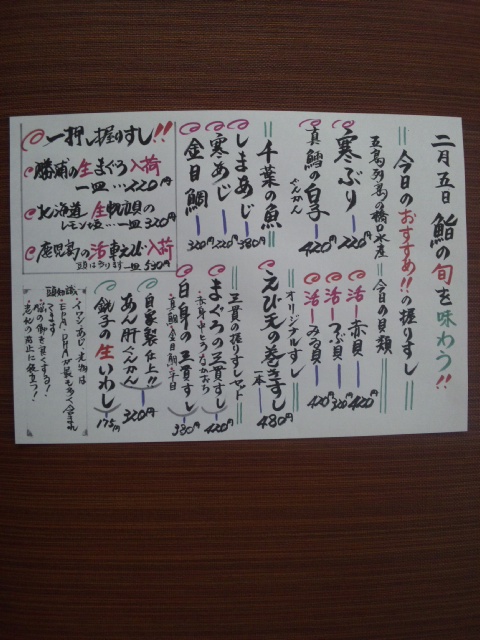 二月五日 鮨の旬を味わう!!
今日のおすすめ!!の握りすし
五島列島の橋口水産
寒ぶり 220円
真鱈の白子 420円
ぐんかん
千葉の魚
しまあじ 380円
寒あじ 220円
金目鯛 320円
一押し握りすし!!
勝浦の生まぐろ入荷
一皿…220円
北海道 生帆立貝の
レモン塩…一皿320円
鹿児島の活車えび入荷
頭はあります 一皿530円
今日の貝類
活 赤貝 420円
活 つぶ貝 320円
活 みる貝 420円
オリジナルすし
えび天の巻きすし 一本 480円
三貫の握りすしセット
まぐろの三貫すし 420円
赤身 中とろ
白身の三貫すし 380円
真鯛 金目鯛 平目
自家製仕上!!
あん肝ぐんかん 320円
銚子の生いわし 175円
豆知識
・イワシ、あじ、光物は
EPA、DHAが最も多く含まれ
てます!
・脳の働を良くする!
・老化の防止に役立つ!